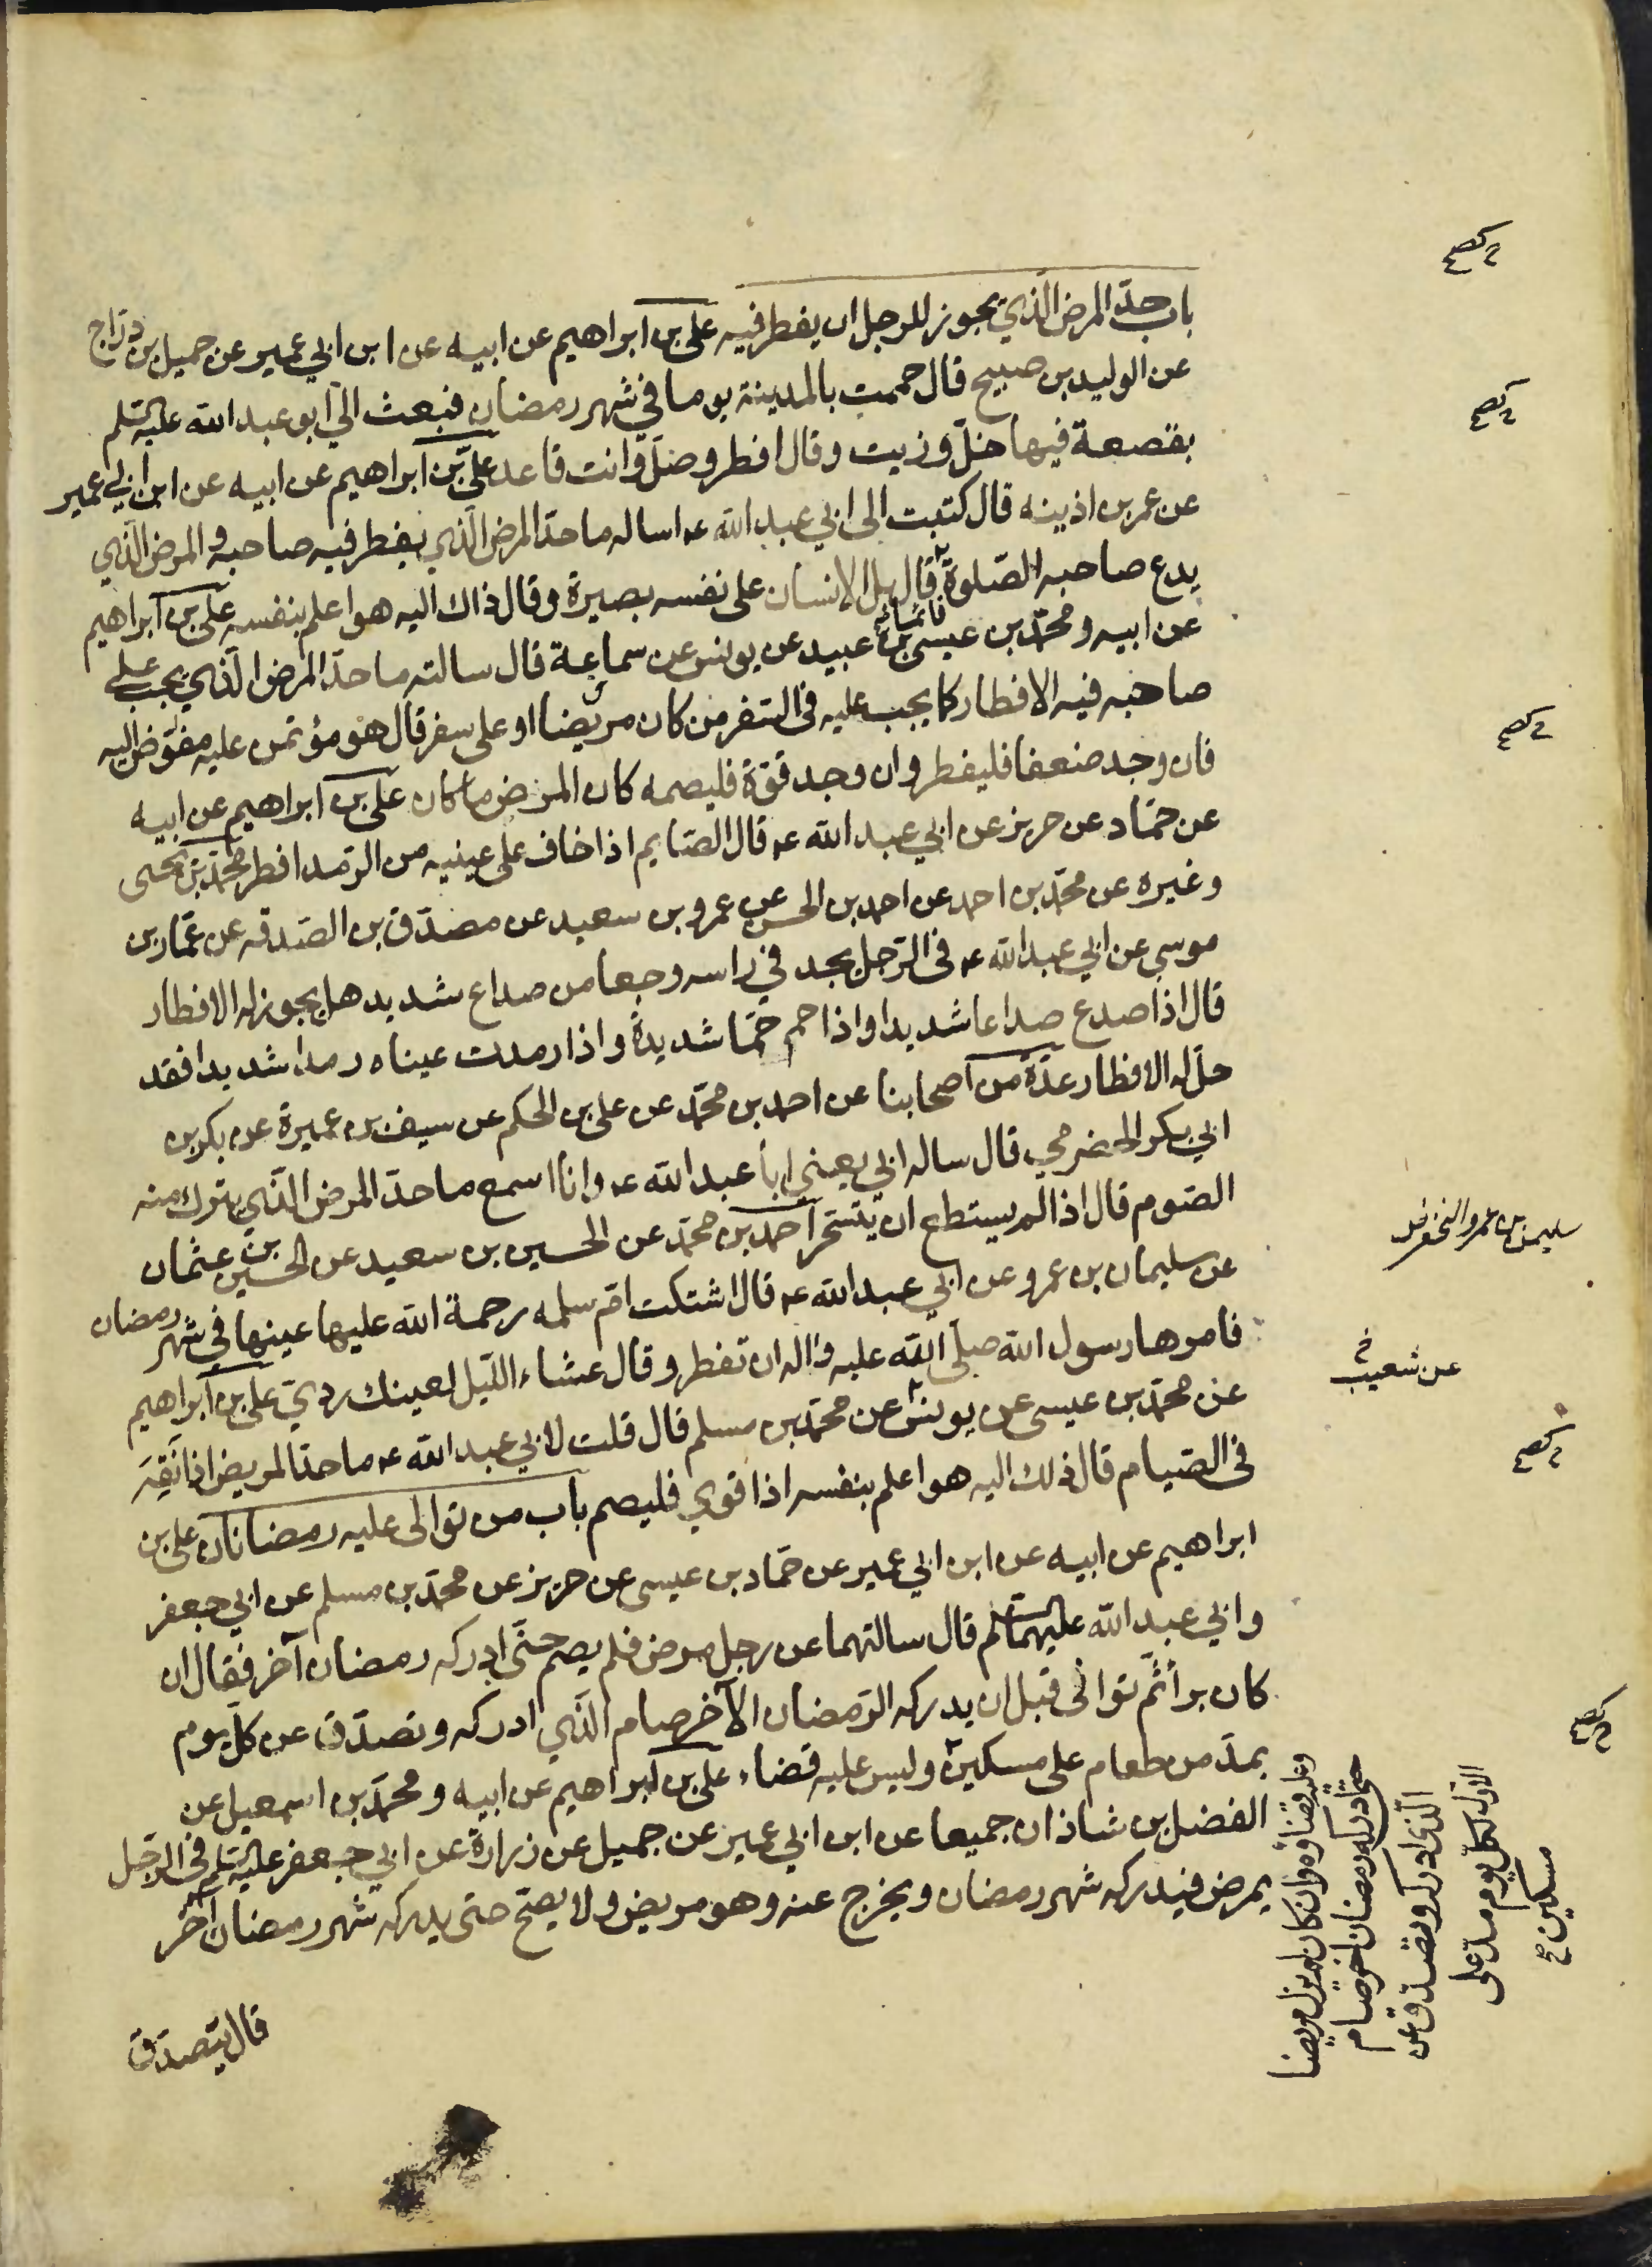 باب حدّ المرض الّذي يجوز للرجل ان يفطر فيه علي بن ابراهيم عن ابيه عن ابن ابي عمير عن جميل بن درّاج
عن الوليد بن صبيح قال حممت بالمدينة يوما في شهر رمضان فبعث اليّ ابو عبد الله عليه السلم
بقصعة فيها خلّ وزيت وقال افطر وصلّ وانت قاعد عليّ بن ابراهيم عن ابيه عن ابن ابي عمير
عن عمر بن اذينه قال كتبت الى ابي عبد الله ع اساله ما حدّ المرض الّذي يفطر فيه صاحبه والمرض الّذي
يدع صاحبه الصّلوة قال بل الانسان على نفسه بصيرة وقال ذاك اليه هو اعلم بنفسه علي بن ابراهيم
قائما
عن ابيه ومحمّد بن عيسى بن عبيد عن يونس عن سماعة قال سالته ما حدّ المرض الّذي يجب على
صاحبه فيه الافطار كما يجب عليه في السّفر من كان مريضا او على سفر قال هو مؤتمن عليه مفوّض اليه
فان وجد ضعفا فليفطر وان وجد قوّة فليصمه كان المرض ما كان علي بن ابراهيم عن ابيه
عن حمّاد عن حريز عن ابي عبد الله ع قال الصّايم اذا خاف على عينيه من الرّمد افطر محمّد بن يحيى
وغيره عن محمّد بن احمد عن احمد بن الحسن عن عمرو بن سعيد عن مصدّق بن الصّدقه عن عمّار بن
موسى عن ابي عبد الله ع في الرّجل يجد في راسه وجعا من صداع شديد هل يجوز له الافطار
قال اذا صدع صداعا شديدا واذا حم حمّا شديدة واذا رمدت عيناه رمدا شديدا فقد
حلّ له الافطار عدّة من اصحابنا عن احمد بن محمّد عن علي بن الحكم عن سيف بن عميرة عن بكر بن
ابي بكر الحضرمي قال ساله ابي يعني ابا عبد الله ع وانا اسمع ما حدّ المرض الّذي يترك منه
الصّوم قال اذا لم يستطع ان يتسحّر احمد بن محمّد عن الحسين بن سعيد عن الحسين بن عثمان
عن سليمان بن عمرو عن ابي عبد الله ع قال اشتكت امّ سلمه رحمة الله عليها عينها في شهر رمضان
فامرها رسول الله صلّى الله عليه واله ان تفطر وقال عشاء اللّيل لعينك رديّ علي بن ابراهيم
عن محمّد بن عيسى عن يونس عن محمّد بن مسلم قال قلت لابي عبد الله ع ما حدّ المريض اذا نقِهَ
في الصّيام قال ذلك اليه هو اعلم بنفسه اذا قوي فليصم باب من توالى عليه رمضانان علي بن
ابراهيم عن ابيه عن ابن ابي عمير عن حمّاد بن عيسى عن حريز عن محمّد بن مسلم عن ابي جعفر
وابي عبد الله عليهما السلم قال سالتهما عن رجل مرض فلم يصم حتّى ادركه رمضان آخر فقال ان
كان برأ ثمّ توانى قبل ان يدركه الرّمضان الآخر صام الّذي ادركه وتصدّق عن كلّ يوم
بمدّ من طعام على مسكين وليس عليه قضاء علي بن ابراهيم عن ابيه ومحمّد بن اسمعيل عن
الفضل بن شاذان جميعا عن ابن ابي عمير عن جميل عن زرارة عن ابي جعفر عليه السلم في الرّجل
يمرض فيدركه شهر رمضان ويخرج عنه وهو مريض ولا يصحّ حتى يدركه شهر رمضان آخر
قال يتصدّق
سليمن بن عمرو النخعي
عن شعيب
وعليه قضاؤه وان كان لم يزل مريضا
حتّى ادركه رمضان اخر صام
الّذي ادركه وتصدّق عن
الاول لكلّ يوم مدّ على
مسكين صح